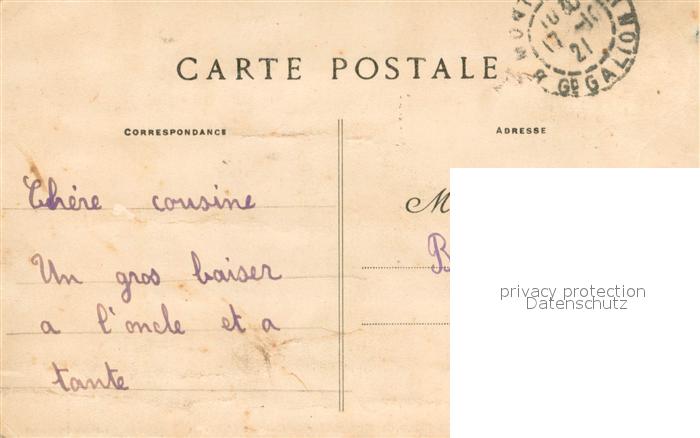 CARTE POSTALE
CORRESPONDANCE
ADRESSE
Chère cousine
Un gros baiser
a l'oncle et a
tante
M
B
privacy protection
Datenschutz
MONT
17
21
R Gd GALION